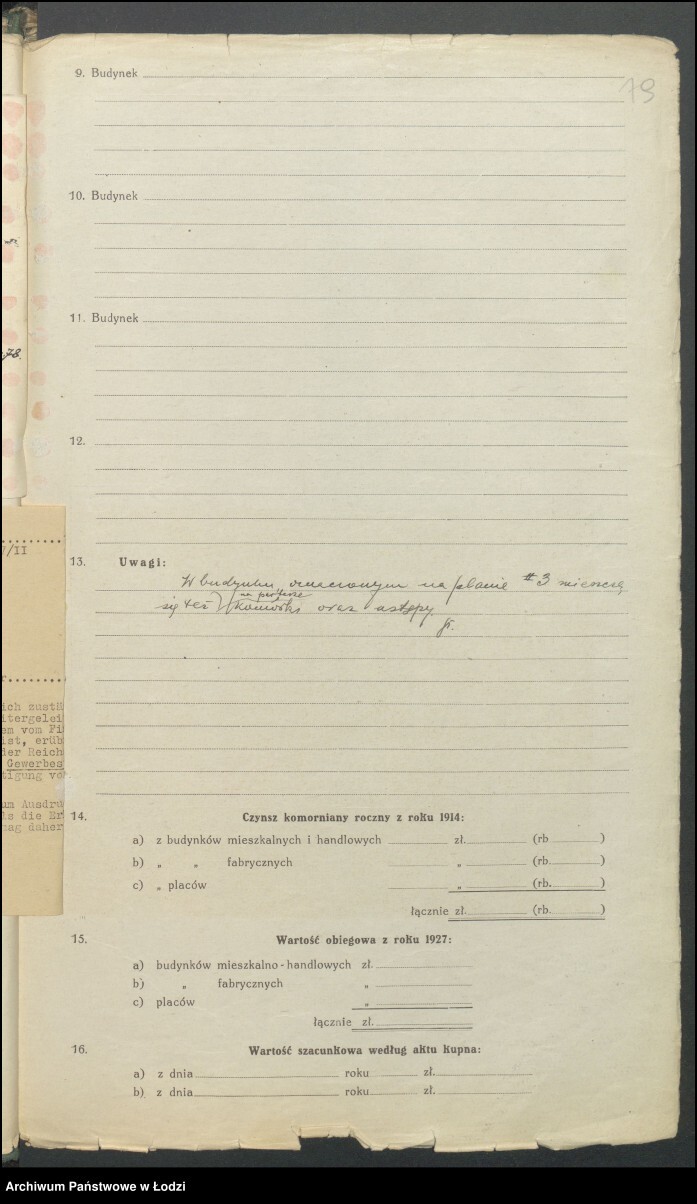 79
9. Budynek
10. Budynek
11. Budynek
78.
12.
7/II
13. Uwagi:
W budynku, oznaczonym na planie #3 mieszczą
na parterze
się też komórki oraz ustępy
ich zustä
itergelei
em vom Fi
ist, erüb
der Reich
Gewerbes
tigung vo
um Ausdru
ls die Er
mag daher
14. Czynsz komorniany roczny z roku 1914:
a) z budynków mieszkalnych i handlowych zł. (rb. )
b) „ „ fabrycznych „ (rb. )
c) „ placów „ (rb. )
łącznie zł. (rb. )
15. Wartość obiegowa z roku 1927:
a) budynków mieszkalno-handlowych zł.
b) „ fabrycznych „
c) placów „
łącznie zł.
16. Wartość szacunkowa według aktu kupna:
a) z dnia roku zł.
b) z dnia roku zł.
Archiwum Państwowe w Łodzi